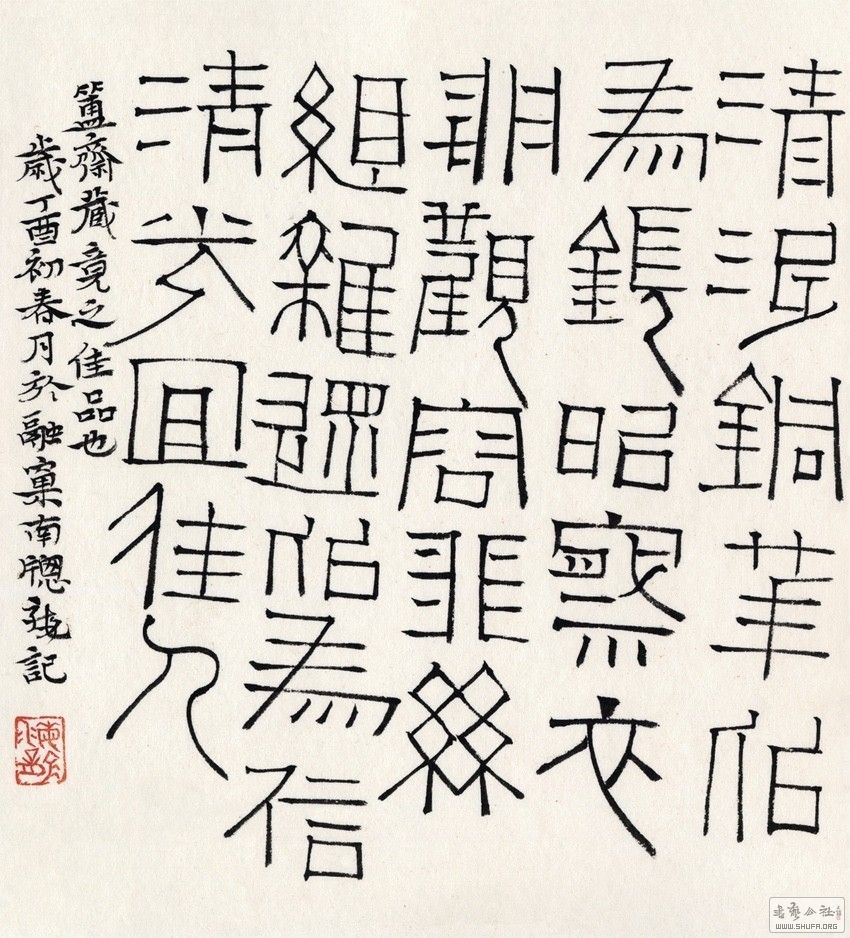 清泿銅華以
為鏡昭察衣
服觀容貌絲
組雜遝以為信
清光宜佳人
簠齋藏竟之佳品也
歲丁酉初春月於融窠南牕記
書藝公社
WWW.SHUFA.ORG